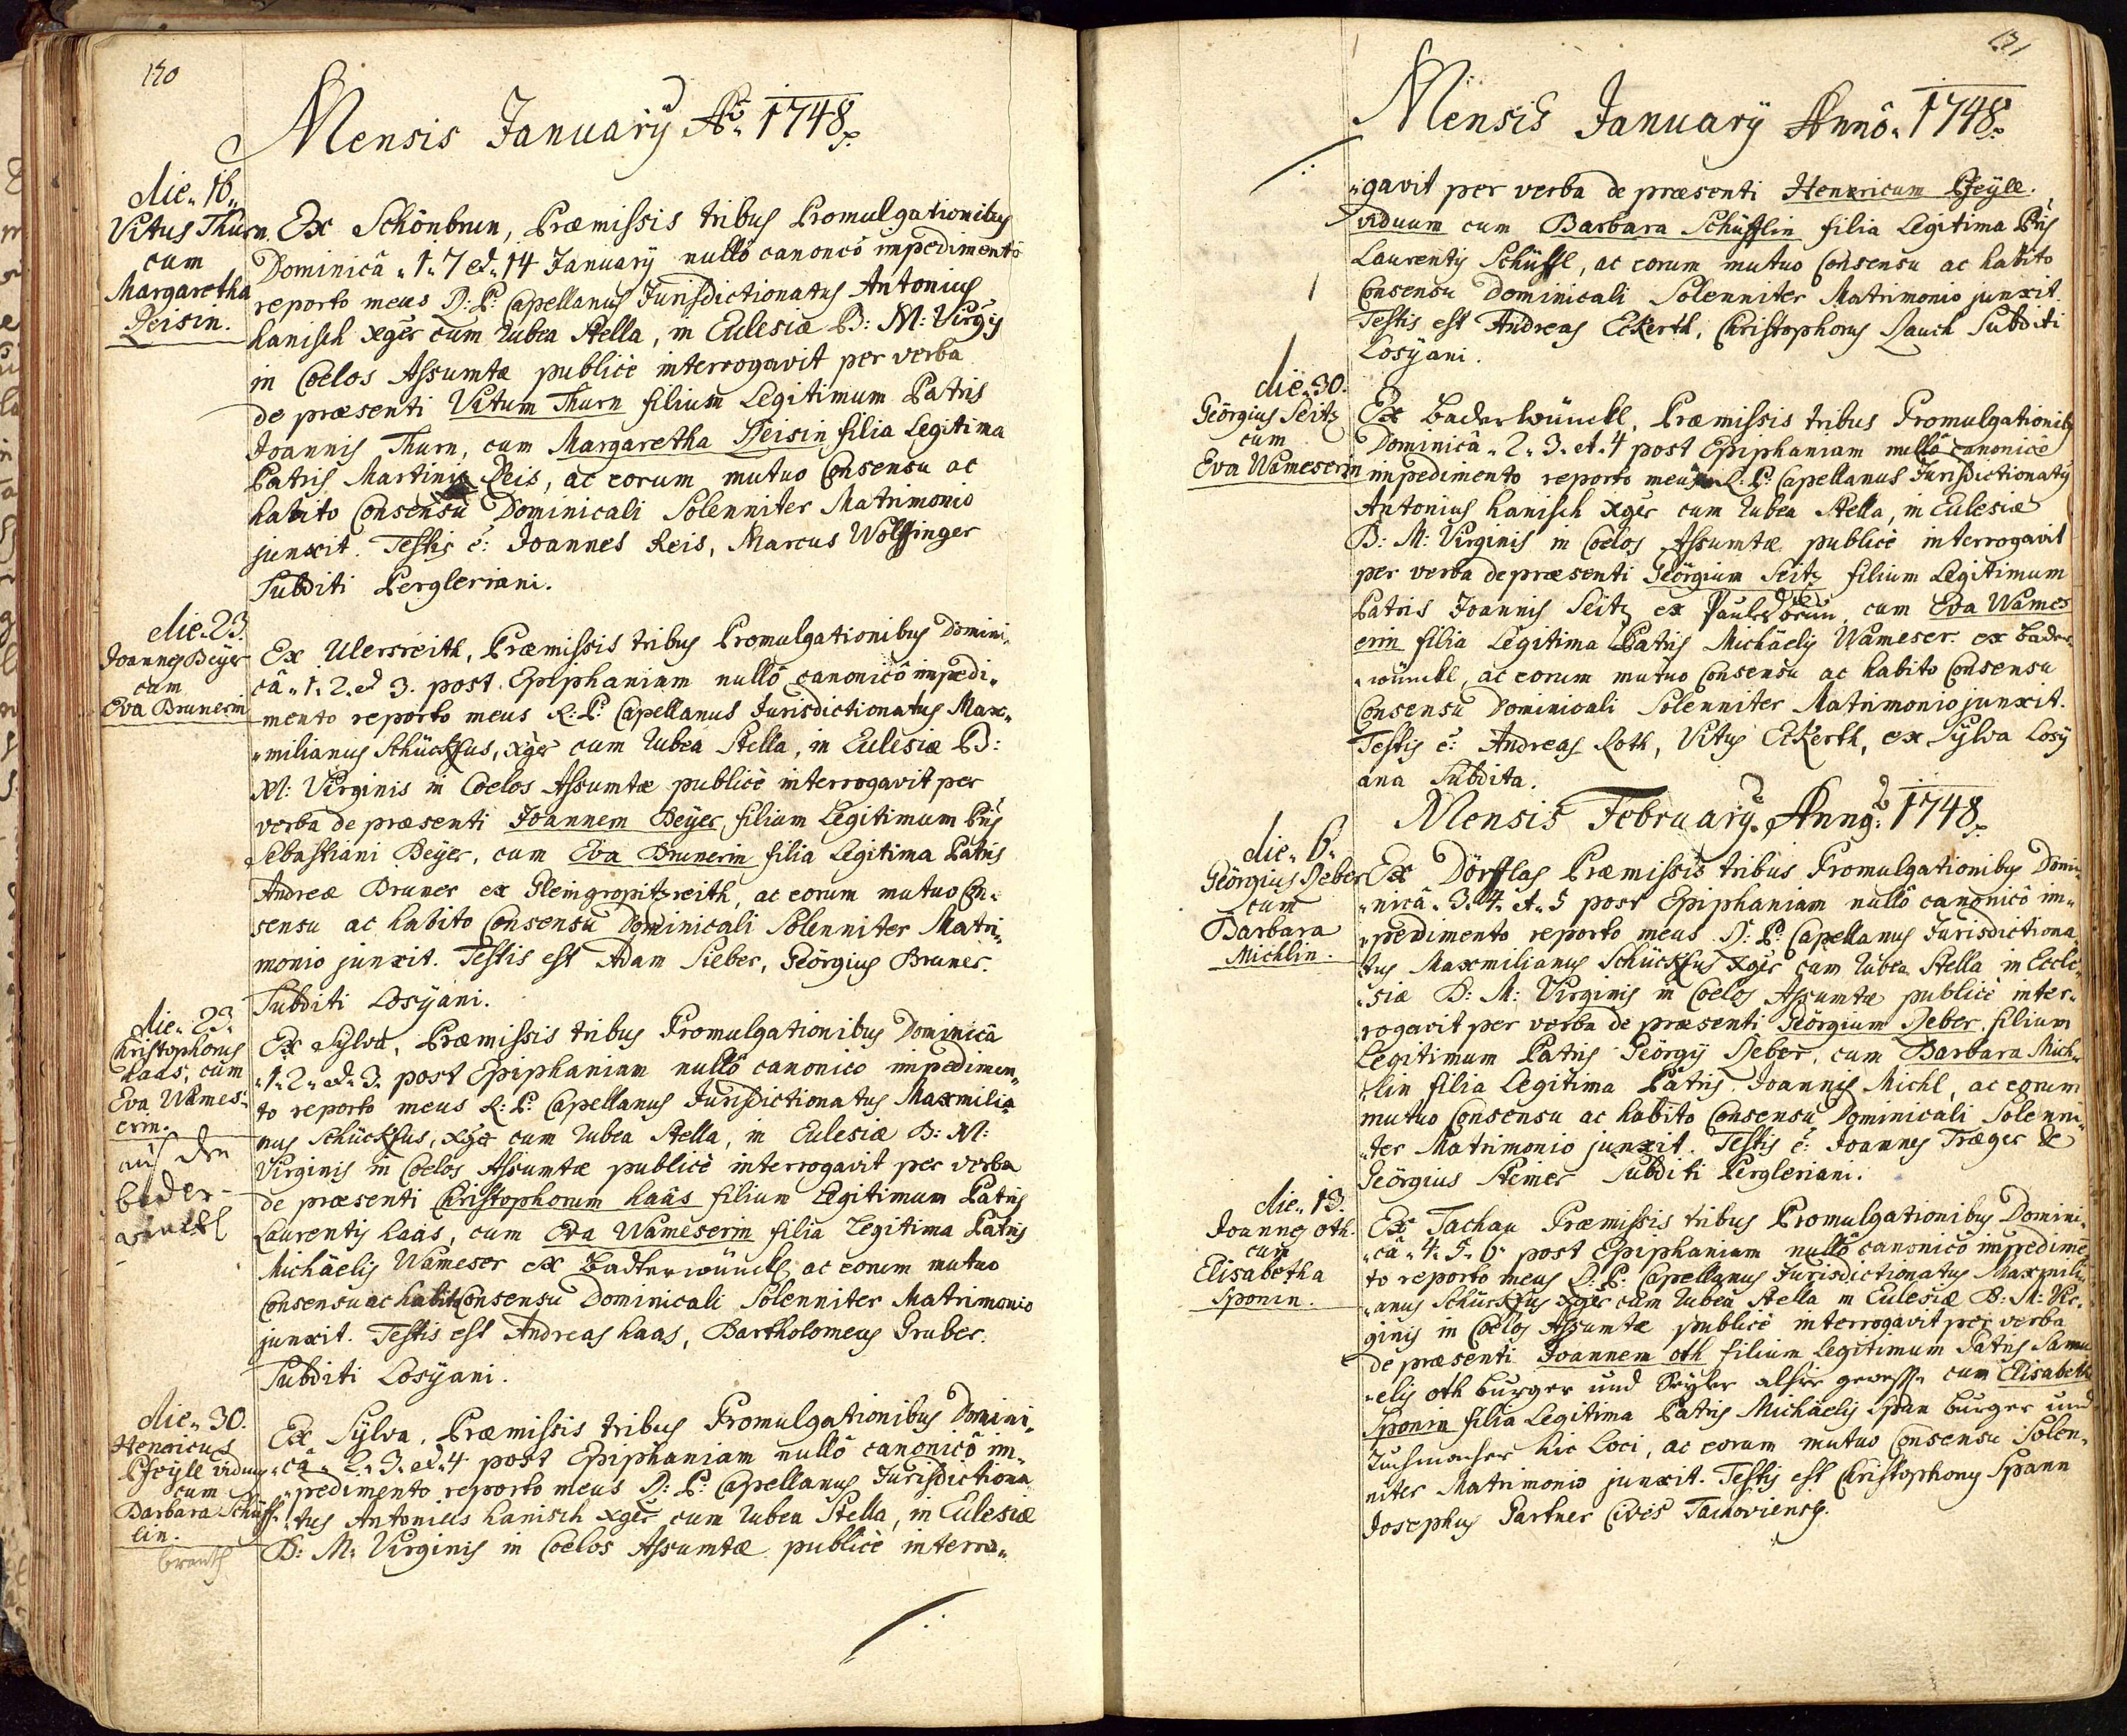 170
Mensis Januarÿ Aõ 1748.
die. 16.
Vitus Thurn
cum
Margaretha
Reisin.
Ex Schönbrun, Præmissis tribus Promulgationibus
Dominicâ 1. 7 et 14 Januarÿ nullô canonicô impedimentô
reperto meus R: P: Capellanus Jurisdictionatus Antonius
hanisch xger cum rubea Stella, in Eulesiæ B: M: Virgis
in Coelos Assumtæ publicè interrogavit per verba
de præsenti Vitum Thurn filium Legitimum Patris
Joannis Thurn, cum Margaretha Reisin filia Legitima
Patris Martini Reis, ac eorum mutuo Consensu ac
habito Consensu Dominicali Solenniter Matrimonio
junxit. Testis ē: Joannes Reis, Marcus Wolffinger
Subditi Pergleriani.
die. 23.
Joannes Beÿer
cum
Eva Brunerin
Ex Ulersreith, Præmissis tribus Promulgationibus Domini,,
câ 1. 2. et 3. post Epiphaniam nullô canonicô impedi,,
mento reperto meus R: P: Capellanus Jurisdictionatus Max,,
,,milianus Schückfus, xger cum rubea Stella, in Eulesiæ B:
M: Virginis in Coelos Assumtæ publicè interrogavit per
verba de præsenti Joannem Beÿer filium Legitimum Pris
Sebastiani Beÿer, cum Eva Brunerin filia Legitima Patris
Andreæ Bruner ex Gleingropitzreith, ac eorum mutuo Con,,
sensu ac habito Consensu Dominicali Solenniter Matri,,
monio junxit. Testis est Adam Sieber, Geörgius Bruner.
Subditi Losÿani.
die. 23.
Christophorus
haas, cum
Eva Wames:
erin.
auß den
bader-
winckl
Ex Sylva, Præmissis tribus Promulgationibus Dominicâ
1. 2. et 3. post Epiphaniam nullô canonico impedimen,,
to reperto meus R: P: Capellanus Jurisdictionatus Maxmilia,,
nus Schückfus, xger cum rubea Stella, in Eulesiæ B: M:
Virginis in Coelos Assumtæ publicè interrogavit per verba
de præsenti Christophorum haas filium Legitimum Patris
Laurentÿ haas, cum Eva Wameserin filia Legitima Patris
Michäelis Wameser ex Baderwünckl, ac eorum mutuo
Consensu ac habito Consensu Dominicali Solenniter Matrimonio
junxit. Testis est Andreas haas, Bartholomeus Gruber.
Subditi Losÿani.
die. 30.
Henricus
Pfeÿll viduus
cum
Barbara Schüff,,
lin.
Ex Sylva, Præmissis tribus Promulgationibus Domini,,
câ 2. 3. et 4 post Epiphaniam nullô canonicô im,,
,,pedimento reperto meus R: P: Capellanus Jurisdictiona
,,tus Antonius hanisch xger cum rubea Stella, in Eulesiæ
B: M: Virginis in Coelos Assumtæ publicè interro,,
171
Mensis Januarÿ Annô 1748.
,,gavit per verba de præsenti Henericum Pfeÿll
viduum cum Barbara Schüfflin filia Legitima Pris
Laurentÿ Schüffl, ac eorum mutuo Consensu ac habito
Consensu Dominicali Solenniter Matrimonio junxit.
Testis est Andreas Eckerth, Christophorus Rauch Subditi
Losÿani.
die. 30.
Geörgius Seitz
cum
Eva Wameserin
Ex Baderwünckl, Præmissis tribus Promulgationibus
Dominicâ 2. 3. et 4 post Epiphaniam nullô canonicô
impedimento reperto meus R: P: Capellanus Jurisdictionatus
Antonius hanisch xger cum rubea Stella, in Eulesiæ
B: M: Virginis in Coelos Assumtæ publicè interrogavit
per verba de præsenti Geörgium Seitz filium Legitimum
Patris Joannis Seitz ex Paulusbrun, cum Eva Wames
erin filia Legitima Patris Michäelis Wameser ex Bader,,
,,wünckl, ac eorum mutuo Consensu ac habito Consensu
Consensu Dominicali Solenniter Matrimonio junxit.
Testis ē: Andreas Roth, Vitus Eckerth, ex Sylva Losÿ
ana Subdita.
Mensis Februarÿ Anno 1748.
die. 6.
Geörgius Reber
cum
Barbara
Michlin.
Ex Dörfflas Præmissis tribus Promulgationibus Domi,,
,,nicâ 3. 4. et 5 post Epiphaniam nullô canonicô im,,
,,pedimento reperto meus R: P: Capellanus Jurisdictiona,,
tus Maxmilianus Schückfus xger cum rubea Stella in Eccle,,
,,siæ B: M: Virginis in Coelos Assumtæ publicè inter,,
rogavit per verba de præsenti Geörgium Reber filium
Legitimum Patris Geörgÿ Reber, cum Barbara Mich,,
,,lin filia Legitima Patris Joannis Michl, ac eorum
mutuo Consensu ac habito Consensu Dominicali Solenni,,
,,ter Matrimonio junxit. Testis ē: Joannes Træger &
Geörgius Steiner Subditi Pergleriani.
die. 13.
Joannes oth
cum
Elisabetha
Sponin.
Ex Tachau Præmissis tribus Promulgationibus Domini,,
,,câ 4. 5. 6. post Epiphaniam nullô canonicô impedimē
to reperto meus R: P: Capellanus Jurisdictionatus Maxmili,,
,,anus Schückfus xger cum rubea Stella in Eulesiæ B: M: Vir,,
ginis in Coelos Assumtæ publicè interrogavit per verba
de præsenti Joannem oth filium Legitimum Patris Samu
,,elis oth burger und alhier cum Elisabetha
Sponin filia Legitima Patris Michäelis Span burger und
Tuchmacher hic Loci, ac eorum mutuo Consensu Solen,,
niter Matrimonio junxit. Testis est Christophorus Spann
Josephus Gartner Cives Tachoviensis.